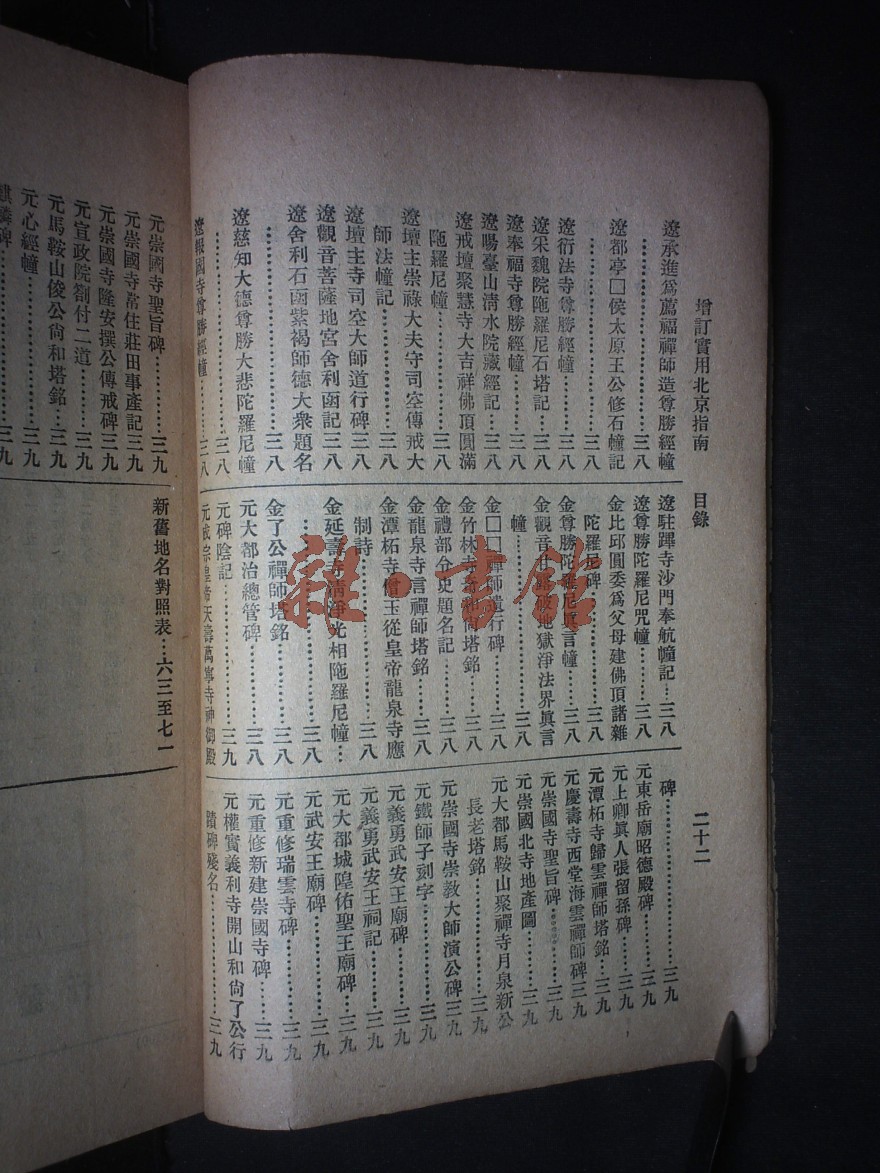 增訂實用北京指南　目錄　二十二
遼承進爲薦福禪師造尊勝經幢
…………………………三八
遼都亭□侯太原王公修石幢記
…………………………三八
遼衍法寺尊勝經幢………三八
遼宋魏院陁羅尼石塔記…三八
遼奉福寺尊勝經幢………三八
遼暘臺山清水院藏經記…三八
遼戒壇聚慧寺大吉祥佛頂圓滿
陁羅尼幢…………………三八
遼壇主崇祿大夫守司空傳戒大
師法幢記…………………三八
遼壇主寺司空大師道行碑…三八
遼觀音菩薩地宮舍利函記…三八
遼舍利石函紫褐師德大衆題名
…………………………三八
遼慈知大德尊勝大悲陀羅尼幢
…………………………三八
遼報國寺尊勝經幢………三八
遼駐蹕寺沙門奉航幢記…三八
遼尊勝陀羅尼咒幢………三八
金比邱圓委爲父母建佛頂諸雜
陀羅尼碑…………………三八
金尊勝陀羅尼眞言幢……三八
金觀音甘露破地獄淨法界眞言
幢…………………………三八
金□□禪師遺行碑………三八
金竹林寺奇和尙塔銘……三八
金禮部令史題名記………三八
金龍泉寺言禪師塔銘……三八
金潭柘寺僧玉從皇帝龍泉寺應
制詩………………………三八
金延壽寺淸淨光相陁羅尼幢…
…………………………三八
金了公禪師塔銘…………三八
元大都治總管碑…………三八
元碑陰記…………………三九
元成宗皇帝天壽萬寧寺神御殿
碑…………………………三九
元東岳廟昭德殿碑………三九
元上卿眞人張留孫碑……三九
元潭柘寺歸雲禪師塔銘…三九
元慶壽寺西堂海雲禪師碑三九
元崇國寺聖旨碑…………三九
元崇國北寺地產圖………三九
元大都馬鞍山聚禪寺月泉新公
長老塔銘…………………三九
元崇國寺崇教大師演公碑三九
元鐵師子刻字……………三九
元義勇武安王廟碑………三九
元義勇武安王祠記………三九
元大都城隍佑聖王廟碑…三九
元武安王廟碑……………三九
元重修瑞雲寺碑…………三九
元重修新建崇國寺碑……三九
元權實義利寺開山和尙了公行
蹟碑殘名…………………三九
元崇國寺聖旨碑…………三九
元崇國寺常住莊田事產記三九
元崇國寺隆安撰公傳戒碑三九
元宣政院劄付二道………三九
元馬鞍山俊公尙和塔銘…三九
元心經幢…………………三九
麒麟碑……………………三九
新舊地名對照表…六三至七一
雜·書館